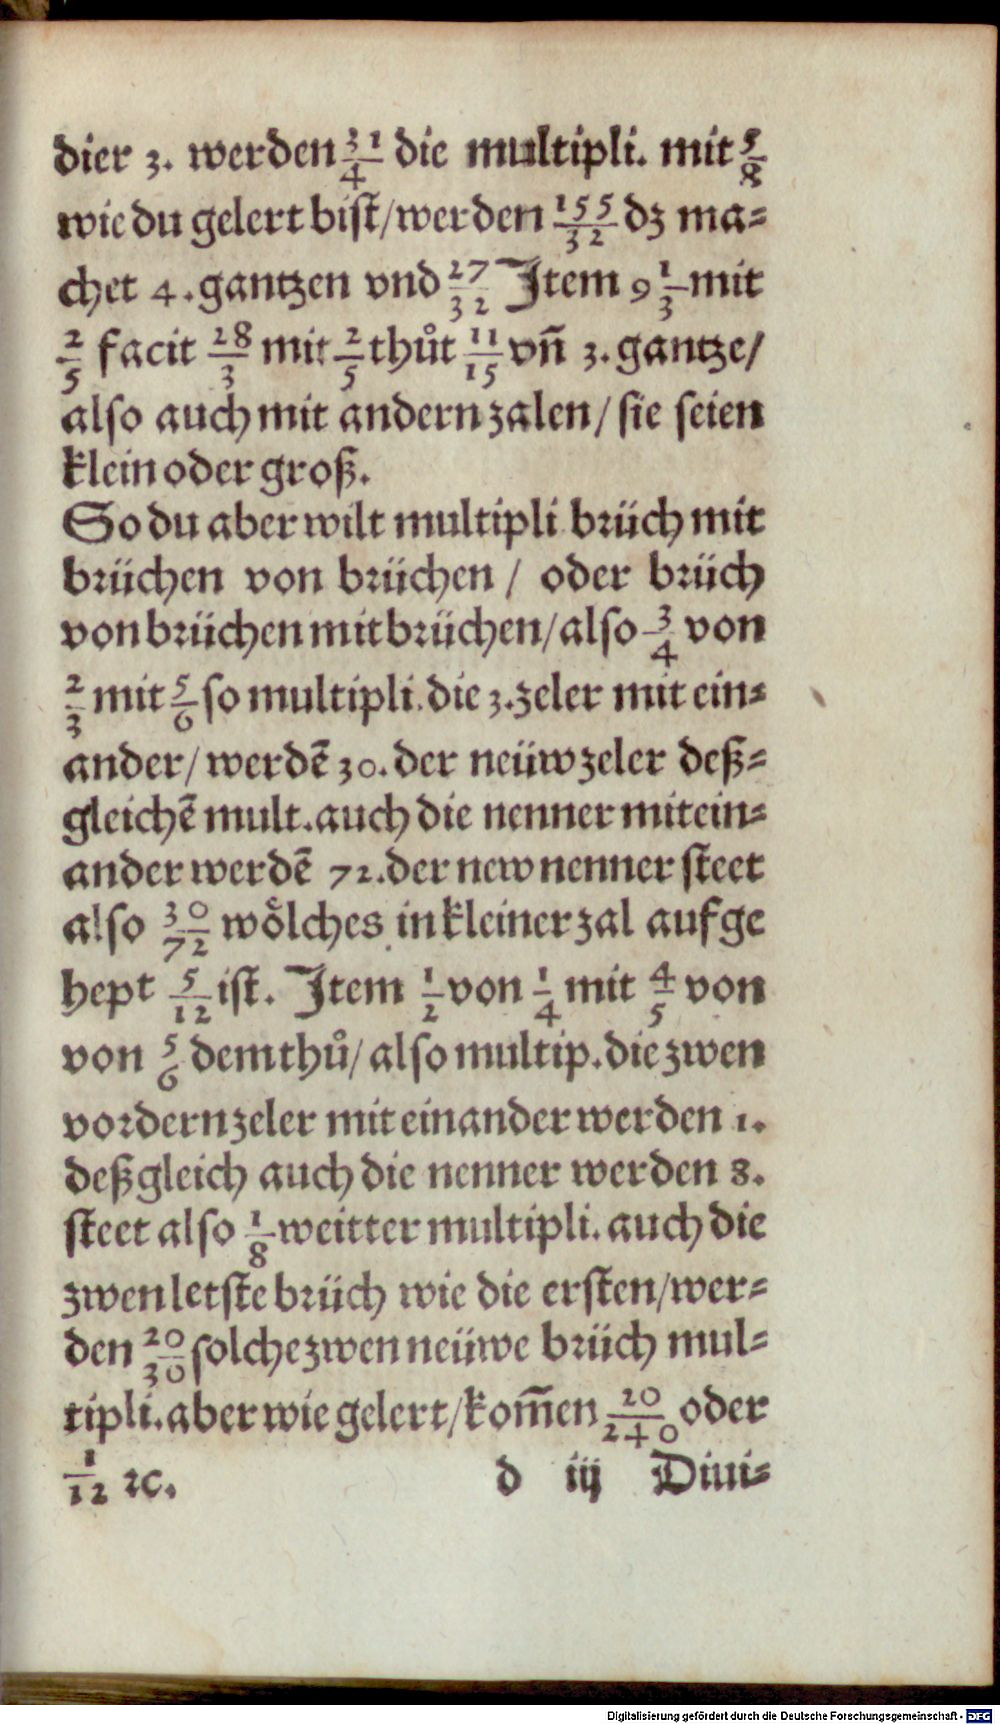 dier 3. werden 31/4 die multipli. mit 5/8
wie du gelert bist/werden 155/32 dz ma-
chet 4. gantzen vnd 27/32 Item 9 1/3 mit
2/5 facit 28/3 mit 2/5 thůt 11/15 vñ 3. gantze/
also auch mit andern zalen/ sie seien
klein oder groß.
So du aber wilt multipli brüch mit
brüchen von brüchen / oder brüch
von brüchen mit brüchen/also 3/4 von
2/3 mit 5/6 so multipli. die 3. zeler mit ein-
ander/ werdē 30. der neüw zeler deß-
gleichē mult. auch die nenner mit ein-
ander werdē 72. der new nenner steet
also 30/72 woͤlches in kleiner zal auf ge
hept 5/12 ist. Item 1/2 von 1/4 mit 4/5 von
von 5/6 dem thů/ also multip. die zwen
vordern zeler mit einander werden 1.
deßgleich auch die nenner werden 8.
steet also 1/8 weitter multipli. auch die
zwen letste brüch wie die ersten/wer-
den 20/30 solche zwen neüwe brüch mul-
tipli. aber wie gelert/kom̄en 20/240 oder
1/12 ꝛc. d iij Diui-
Digitalisierung gefördert durch die Deutsche Forschungsgemeinschaft - DFG